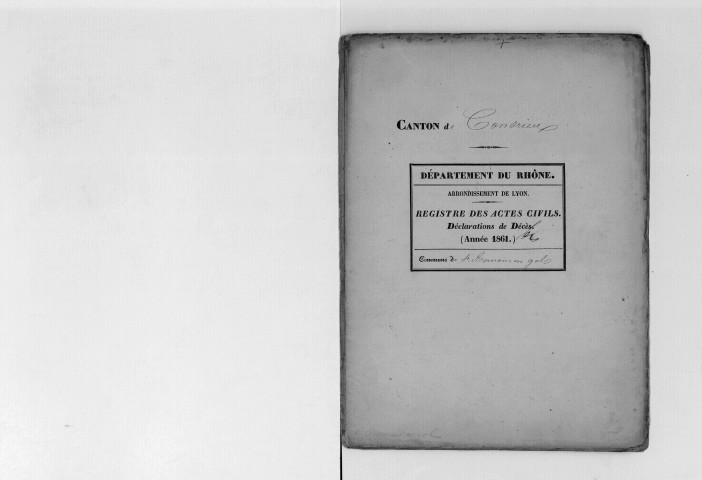 CANTON de Condrieu
DÉPARTEMENT DU RHÔNE.
ARRONDISSEMENT DE LYON.
REGISTRE DES ACTES CIVILS.
Déclarations de Décès.
(Année 1861.)
Commune de St Romain en gal